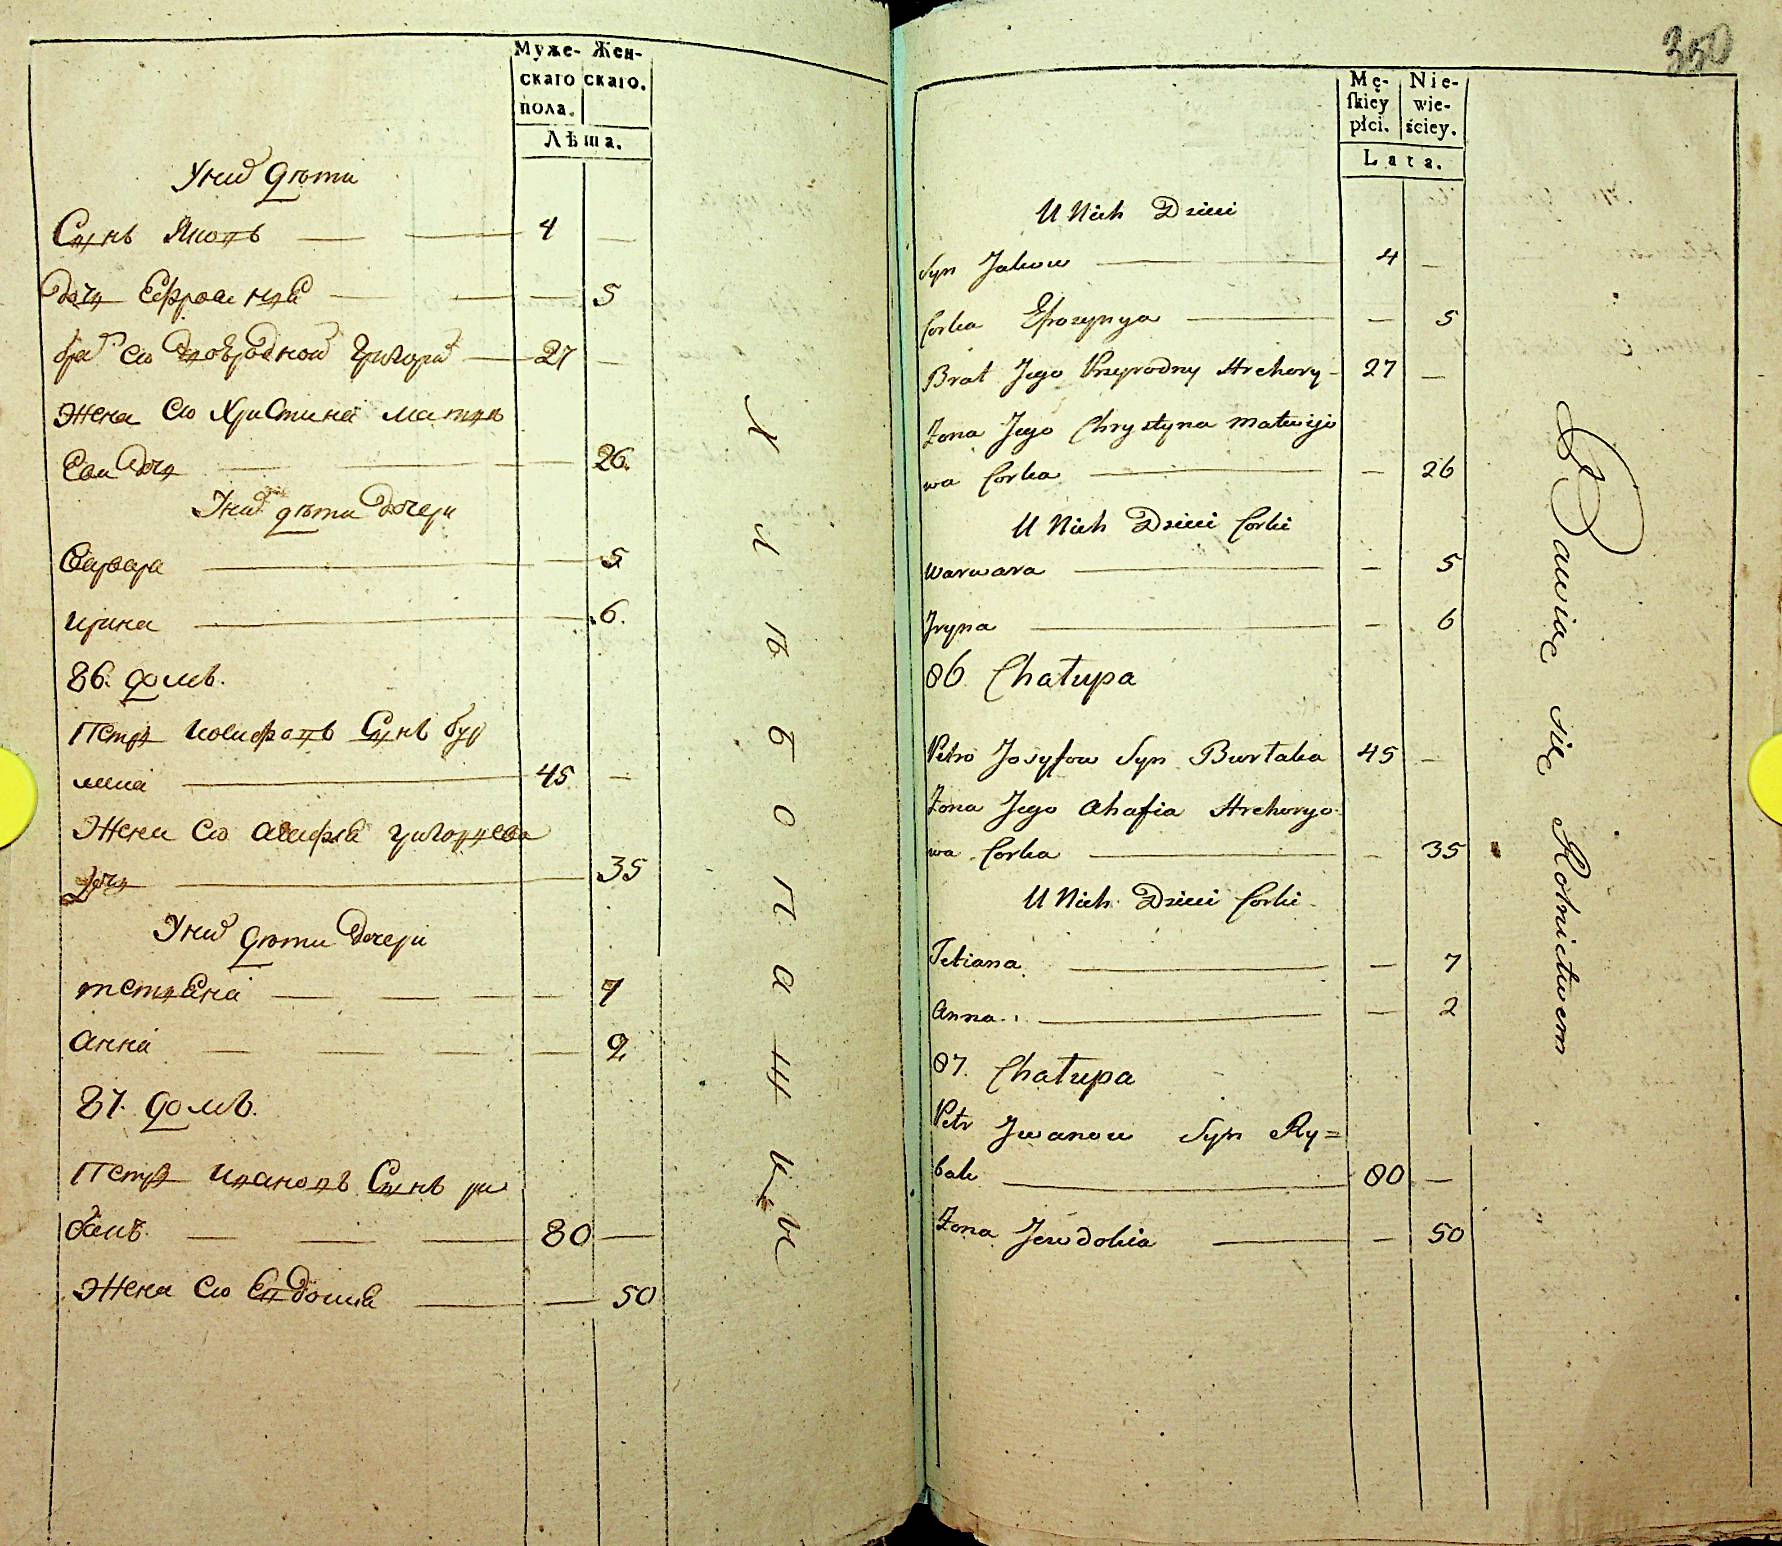 Муже- Жен-
скаго скаго.
пола.
Лѣта.
У них дѣти
Сынъ Яковъ — — 4 —
дочь Ефросиния — — — 5
брат ево двоюродной Григорий — 27 —
Жена ево Христина Матвѣ
ева дочь — — — 26.
У них дѣти дочери
Варвара — — 5
Ирина — — 6.
86. домъ.
Петръ Иосифовъ Сынъ бур
— 45 —
Жена ево Агафия Григорьева
дочь — 35
У них дѣти дочери
тетияна — — — — 7
Анна — — — — 2
87. домъ.
Петръ Ивановъ Сынъ ри
бакъ. — — — 80 —
Жена ево Евдокия — — 50
Хлѣбопашцы
350
Mę- Nie-
skiey wie-
płci. ściey.
Lata.
U Nich Dzieci
Syn Jakow — 4 —
Corka Efrozynya — — 5
Brat Jego Przyrodny Hrehory — 27 —
Żona Jego Chrystyna Matwijo
wa Corka — — 26
U Nich Dzieci Corki
Warwara — — 5
Jryna — — 6
86. Chałupa
Petro Josyfow Syn Burtaka 45 —
Żona Jego Ahafia Hrehoryo
wa Corka — — 35
U Nich Dzieci Corki
Tetiana — — 7
Anna — — 2
87. Chałupa
Petr Jwanow Syn Ry=
bak — 80 —
Żona Jewdokia — — 50
Bawiąc się Rolnictwem